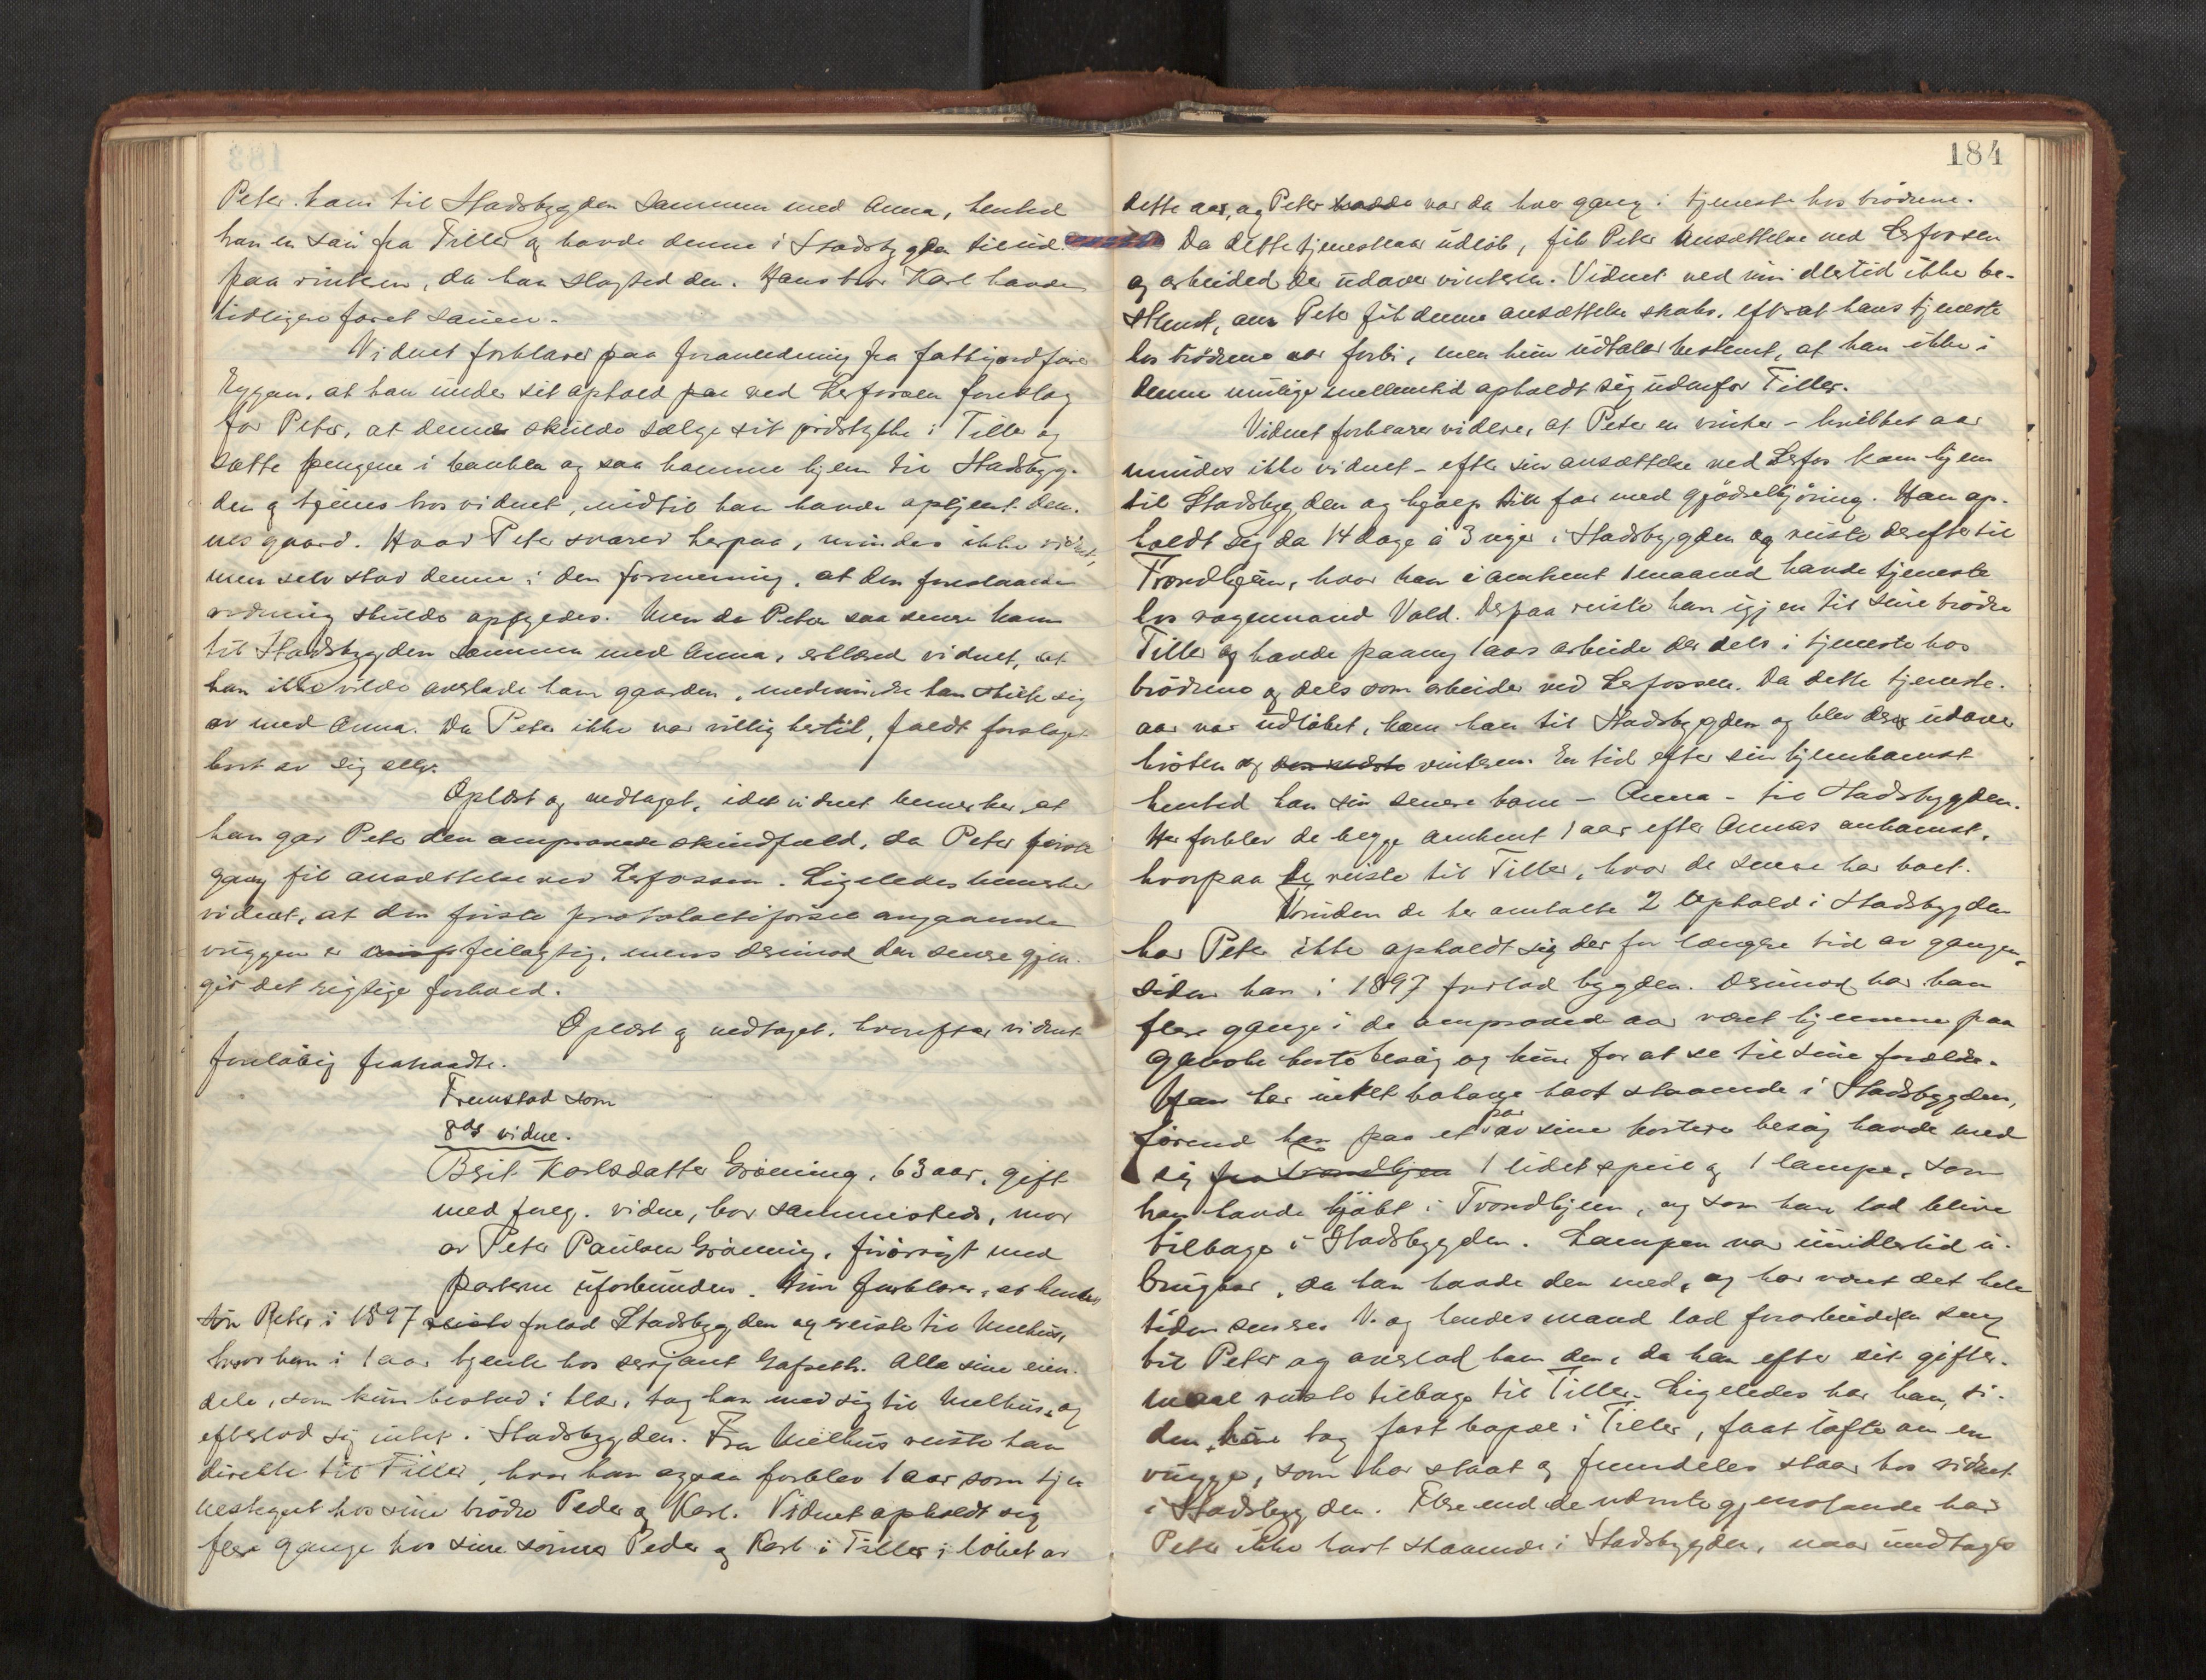 Peter kom til Stadsbygden sammen med Anna, hented
han en sau fra Tiller og havde denne i Stadsbygden til ud
paa vinteren, da han slagted den. Hans bror Karl havde
tidligere foret sauen.
Vidnet forklarer paa foranledning fra fattigordfører
Eggan, at han under sit ophold paa ved Lerfossen foreslog
for Peter, at denne skulde sælge sit jordstykke i Tiller og
sætte pengene i banken og saa komme hjem til Stadsbyg-
den og tjene hos vidnet, indtil han havde optjent den-
nes gaard. Hvad Peter svared herpaa, mindes ikke vidnet,
men selv stod denne i den formening, at den foreslaaede
ordning skulde opfyldes. Men da Peter saa senere kom
til Stadsbygden sammen med Anna, erklæred vidnet, at
han ikke vilde overlade ham gaarden, medmindre han skilte sig
av med Anna. Da Peter ikke var villig hertil, faldt forslaget
bort av sig selv.
Oplæst og vedtaget, idet vidnet bemerker, at
han gav Peter den omprovede skindfæld, da Peter første
gang fik ansættelse ved Lerfossen. Ligeledes bemerker
vidnet, at den første protokoltilførsel angaaende
vuggen er feilagtig, mens derimod den senere gjen-
gir det rigtige forhold.
Oplæst og vedtaget, hvorefter vidnet
foreløbig fratraadte.
Fremstod som
8de vidne.
Brit Karlsdatter Grønning, 63 aar, gift
med foreg. vidne, bor sammesteds, mor
av Peter Paulsen Grønning, forøvrigt med
parterne uforbunden. Hun forklarer, at hendes
søn Peter i 1897 reiste forlod Stadsbygden og reiste til Melhus,
hvor han i 1 aar tjente hos serjant Gafseth. Alle sine eien-
dele, som kun bestod i klær, tog han med sig til Melhus og
efterlod sig intet i Stadsbygden. Fra Melhus reiste han
direkte til Tiller, hvor han ogsaa forblev 1 aar som tje-
nestegut hos sine brødre Peder og Karl. Vidnet opholdt sig
flere gange hos sine sønner Peder og Karl i Tiller i løbet av
184
dette aar, og Peter havde var da hver gang i tjeneste hos brødrene.
Da dette tjenesteaar udløb, fik Peter ansættelse ved Lerfossen
og arbeided der udover vinteren. Vidnet ved imidlertid ikke be-
stemt, om Peter fik denne ansættelse straks efterat hans tjeneste
hos brødrene var forbi, men hun udtaler bestemt, at han ikke i
denne mulige mellemtid opholdt sig udenfor Tiller.
Vidnet forklarer videre, at Peter en vinter - hvilket aar
mindes ikke vidnet - efter sin ansættelse ved Lerfos kom hjem
til Stadsbygden og hjalp sin far med gjødselkjøring. Han op-
holdt sig da 14 dage à 3 uger i Stadsbygden og reiste derefter til
Trondhjem, hvor han i omkrent 1 maaned havde tjeneste
hos vognmand Vold. Derpaa reiste han igjen til sine brødre
Tiller og havde paany 1 aars arbeide der dels i tjeneste hos
brødrene og dels som arbeider ved Lerfossen. Da dette tjeneste-
aar var udløbet, kom han til Stadsbygden og blev der udover
høsten og den næste vinteren. En tid efter sin hjemkomst
hented han sin senere kone - Anna - til Stadsbygden.
Her forblev de begge omkrent 1 aar efter Annas ankomst,
hvorpaa de reiste til Tiller, hvor de senere har boet.
Foruden de her omtalte 2 ophold i Stadsbygden
har Peter ikke opholdt sig der for længere tid av gangen,
siden han i 1897 forlod bygden. Derimod har han
flere gange i de omprovede aar været hjemme paa
ganske korte besøg og kun for at se til sine forældre.
Han har intet bohave havt staaende i Stadsbygden,
førend han paa et par av sine kortere besøg havde med
sig fra Trondhjem 1 lidet speil og 1 lampe, som
han havde kjøbt i Trondhjem, og som han lod blive
tilbage i Stadsbygden. Lampen var imidlertid u-
brugbar, da han havde den med, og har været det hele
tiden senere. V. og hendes mand lod forarbeide en seng
til Peter og overlod ham den, da han efter sit gifter-
maal reiste tilbage til Tiller. Ligeledes har han, si-
den han tog fast bopæl i Tiller, faat løfte om en
vugge, som har staat og fremdeles staar hos vidnet
i Stadsbygden. Flere end de nævnte gjenstande har
Peter ikke havt staaende i Stadsbygden, naar undtages